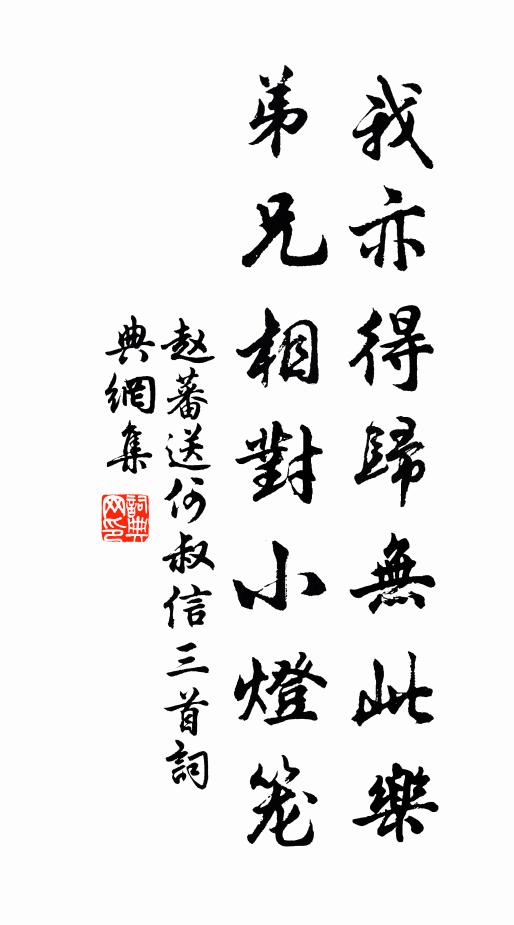 我亦得歸無此樂
弟兄相對小燈笼
赵蕃送何叔信三首詞
典網集
詞典网印